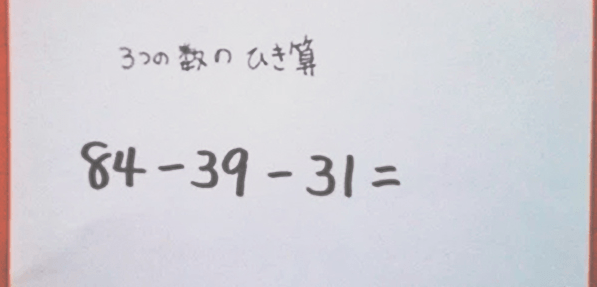 3つの数のひき算
84-39-31=